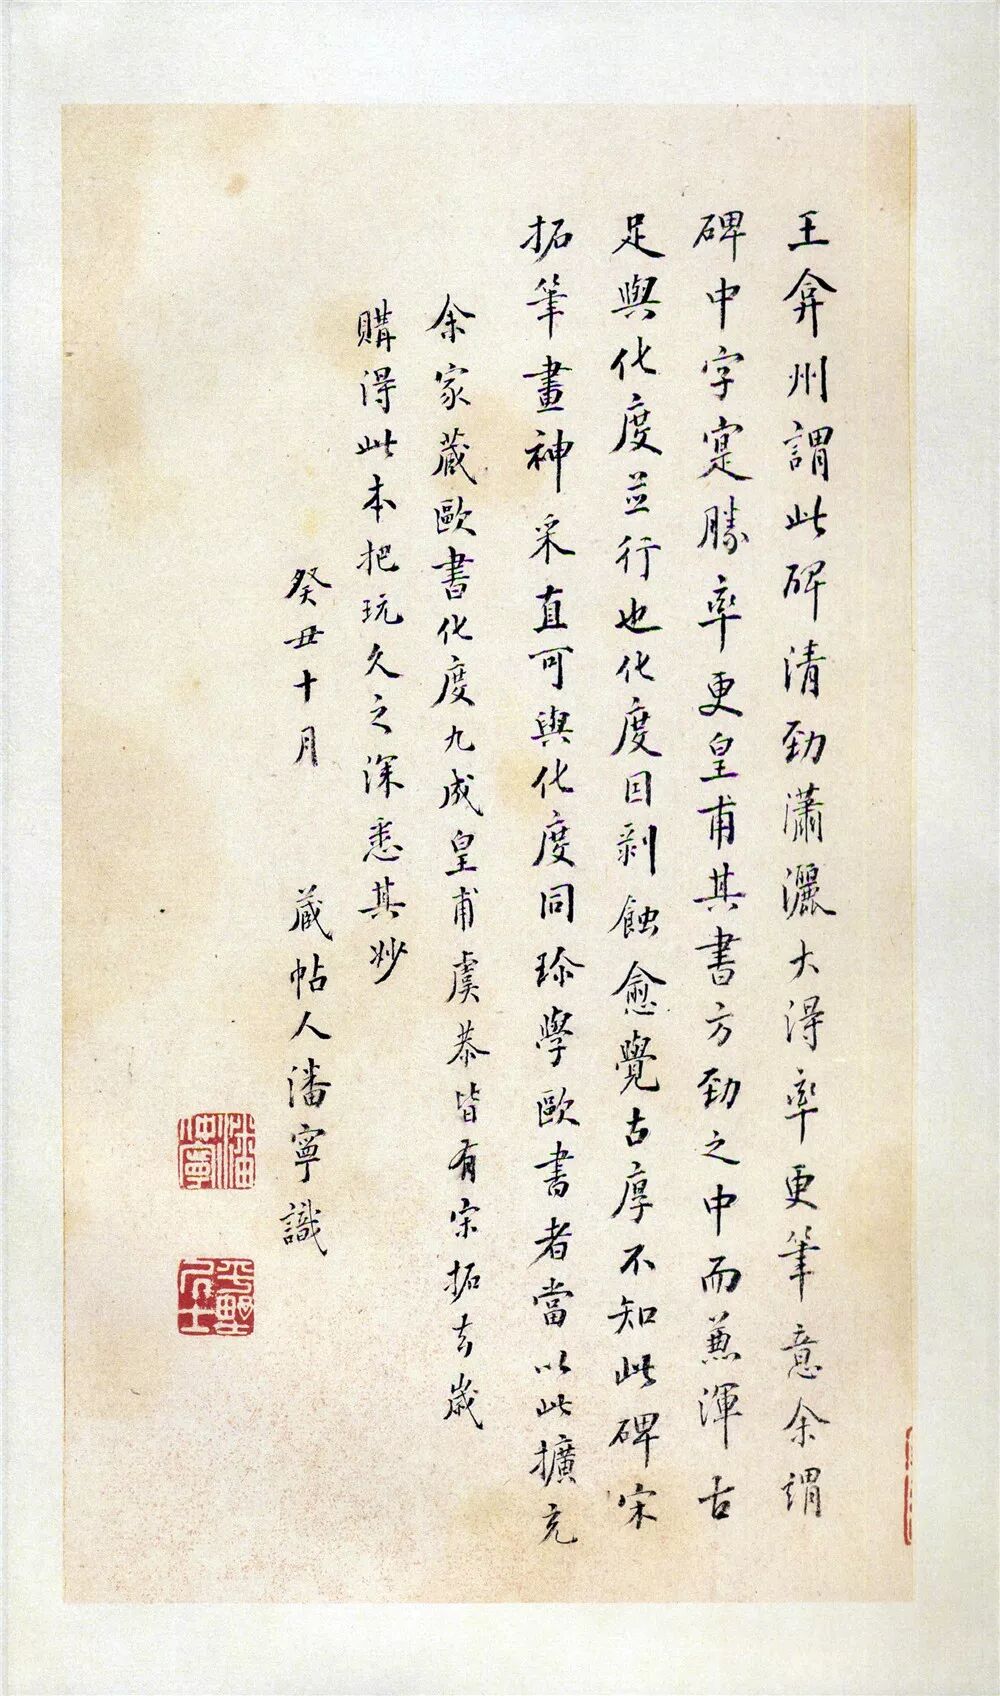 王弇州謂此碑清勁瀟灑大得率更筆意余謂
碑中字寔勝率更皇甫其書方勁之中而兼渾古
足與化度並行也化度因剥蝕愈覺古厚不知此碑宋
拓筆畫神采直可與化度同珎學歐書者當以此擴充
余家藏歐書化度九成皇甫虞恭皆有宋拓去歲
購得此本把玩久之深悉其妙
癸丑十月 藏帖人潘寧識
潘寧
居士